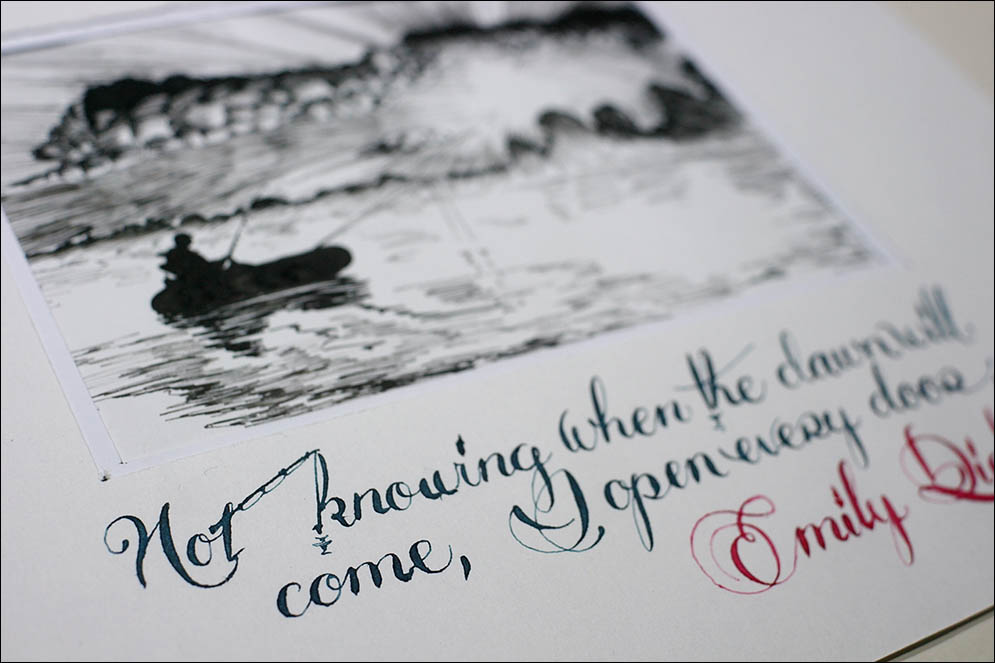 Not knowing when the dawn will
come, I open every door
Emily Di